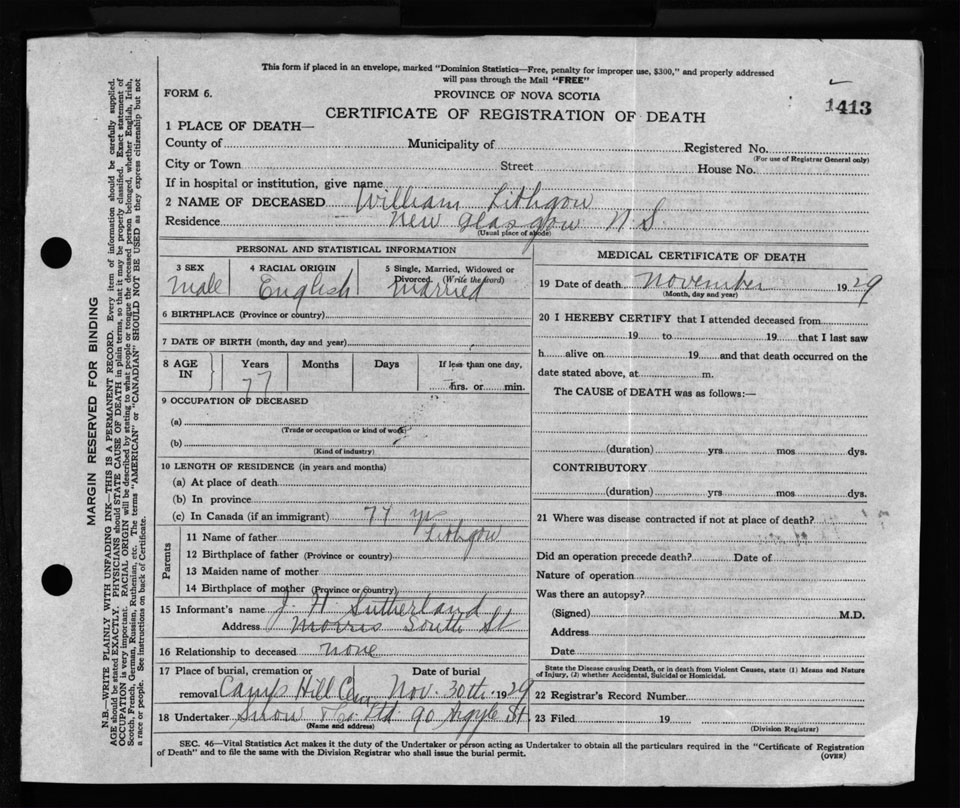 This form if placed in an envelope, marked "Dominion Statistics—Free, penalty for improper use, $300," and properly addressed
will pass through the Mail "FREE"
FORM 6.
PROVINCE OF NOVA SCOTIA
1413
CERTIFICATE OF REGISTRATION OF DEATH
1 PLACE OF DEATH—
County of
Municipality of
Registered No.
(For use of Registrar General only)
City or Town
Street
House No.
If in hospital or institution, give name
2 NAME OF DECEASED William Lithgow
Residence New Glasgow N.S.
(Usual place of abode)
PERSONAL AND STATISTICAL INFORMATION
3 SEX
Male
4 RACIAL ORIGIN
English
5 Single, Married, Widowed or
Divorced. (Write the word)
Married
6 BIRTHPLACE (Province or country)
7 DATE OF BIRTH (month, day and year)
8 AGE
IN
Years
77
Months
Days
If less than one day,
hrs. or min.
9 OCCUPATION OF DECEASED
(a)
(Trade or occupation or kind of work)
(b)
(Kind of industry)
10 LENGTH OF RESIDENCE (in years and months)
(a) At place of death
(b) In province
(c) In Canada (if an immigrant) 77 yr
Parents
11 Name of father Lithgow
12 Birthplace of father (Province or country)
13 Maiden name of mother
14 Birthplace of mother (Province or country)
15 Informant's name J. H. Sutherland
Address Morris South St
16 Relationship to deceased none
17 Place of burial, cremation or
removal Camp Hill Cem
Date of burial
Nov. 30th 1929
18 Undertaker Snow & Co Ltd 90 Argyle St
(Name and address)
MEDICAL CERTIFICATE OF DEATH
19 Date of death November 1929
(Month, day and year)
20 I HEREBY CERTIFY that I attended deceased from
19 to 19 that I last saw
h alive on 19 and that death occurred on the
date stated above, at m.
The CAUSE of DEATH was as follows:—
(duration) yrs mos dys.
CONTRIBUTORY
(duration) yrs mos dys.
21 Where was disease contracted if not at place of death?
Did an operation precede death? Date of
Nature of operation
Was there an autopsy?
(Signed) M.D.
Address
Date
State the Disease causing Death, or in death from Violent Causes, state (1) Means and Nature
of Injury, (2) whether Accidental, Suicidal or Homicidal.
22 Registrar's Record Number
23 Filed 19
(Division Registrar)
SEC. 46—Vital Statistics Act makes it the duty of the Undertaker or person acting as Undertaker to obtain all the particulars required in the "Certificate of Registration
of Death" and to file the same with the Division Registrar who shall issue the burial permit.
(OVER)
MARGIN RESERVED FOR BINDING
N.B.—WRITE PLAINLY WITH UNFADING INK—THIS IS A PERMANENT RECORD. Every item of information should be carefully supplied.
AGE should be stated EXACTLY. PHYSICIANS should STATE CAUSE OF DEATH in plain terms, so that it may be properly classified. Exact statement of
OCCUPATION is very important. RACIAL ORIGIN will be described by stating to what people or tongue the deceased person belonged, whether English, Irish,
Scotch, French, German, Russian, Ruthenian, etc. The terms "AMERICAN" or "CANADIAN" SHOULD NOT BE USED as they express citizenship but not
a race or people. See instructions on back of Certificate.